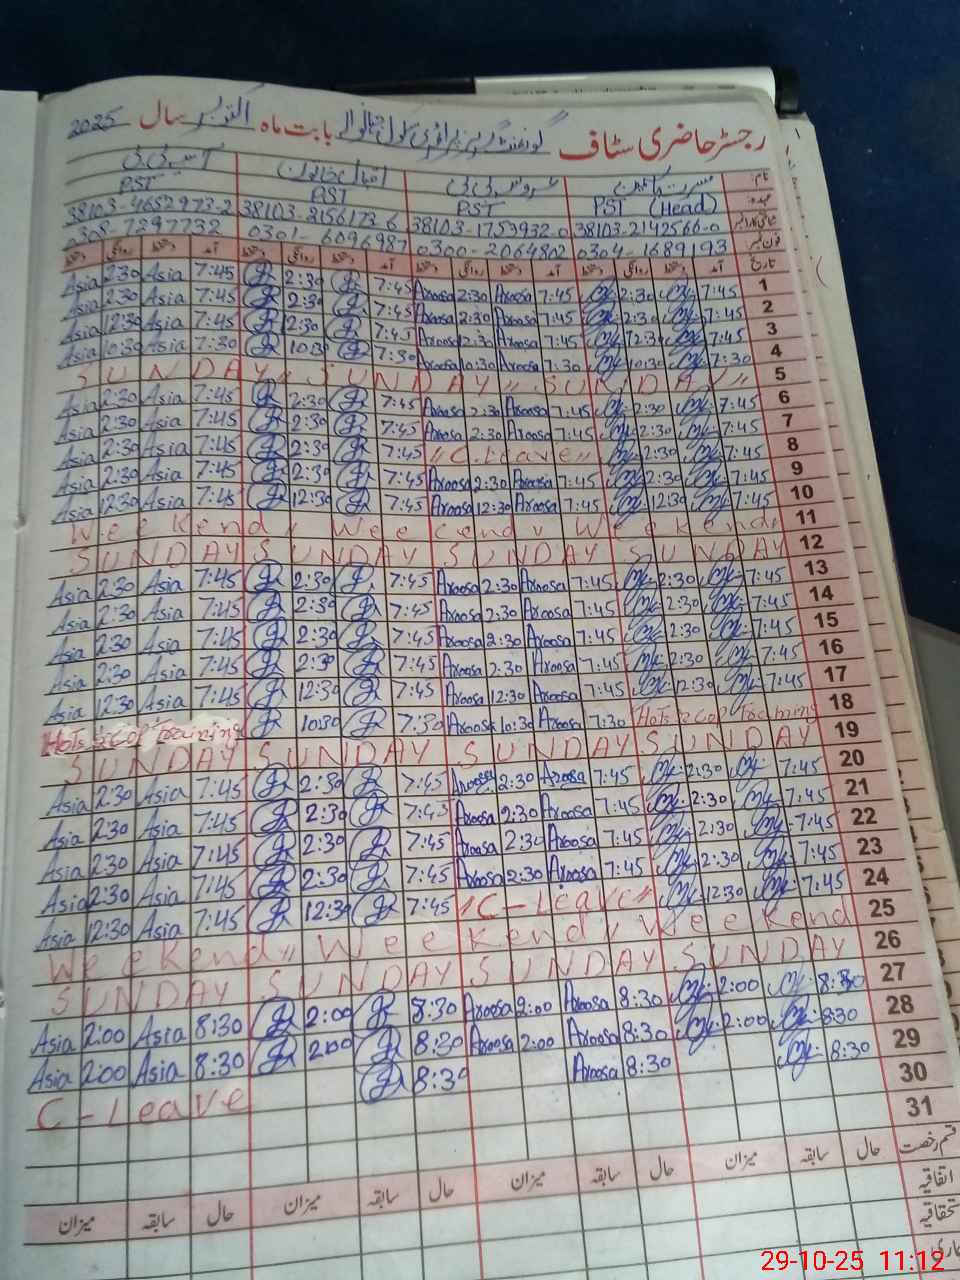 رجسٹر حاضری سٹاف گورنمنٹ گرلز پرائمری سکول بابت ماہ اکتوبر سال 2025
نام:
عہدہ: PST (Head) PST PST PST
38103-4652973-2 38103-8156173-6 38103-1753932-0 38103-2142566-0
0308-7297732 0301-6096987 0300-2064802 0304-1689193 فون نمبر
تاریخ آمد دستخط روانگی دستخط آمد دستخط روانگی دستخط آمد دستخط روانگی دستخط آمد دستخط روانگی دستخط
Asia 2:30 Asia 7:45 2:30 7:45 Aroosa 2:30 Aroosa 7:45 2:30 7:45 1
Asia 2:30 Asia 7:45 2:30 7:45 Aroosa 2:30 Aroosa 7:45 2:30 7:45 2
Asia 12:30 Asia 7:45 12:30 7:45 Aroosa 12:30 Aroosa 7:45 12:30 7:45 3
Asia 10:30 Asia 7:30 10:30 7:30 Aroosa 10:30 Aroosa 7:30 10:30 7:30 4
SUNDAY " SUNDAY " SUNDAY " 5
Asia 2:30 Asia 7:45 2:30 7:45 Aroosa 2:30 Aroosa 7:45 2:30 7:45 6
Asia 2:30 Asia 7:45 2:30 7:45 Aroosa 2:30 Aroosa 7:45 2:30 7:45 7
Asia 2:30 Asia 7:45 2:30 7:45 "C.leave" 2:30 7:45 8
Asia 2:30 Asia 7:45 2:30 7:45 Aroosa 2:30 Aroosa 7:45 2:30 7:45 9
Asia 12:30 Asia 7:45 12:30 7:45 Aroosa 12:30 Aroosa 7:45 12:30 7:45 10
Weekend " Weekend " Weekend " 11
SUNDAY SUNDAY SUNDAY SUNDAY 12
Asia 2:30 Asia 7:45 2:30 7:45 Aroosa 2:30 Aroosa 7:45 2:30 7:45 13
Asia 2:30 Asia 7:45 2:30 7:45 Aroosa 2:30 Aroosa 7:45 2:30 7:45 14
Asia 2:30 Asia 7:45 2:30 7:45 Aroosa 2:30 Aroosa 7:45 2:30 7:45 15
Asia 2:30 Asia 7:45 2:30 7:45 Aroosa 2:30 Aroosa 7:45 2:30 7:45 16
Asia 12:30 Asia 7:45 12:30 7:45 Aroosa 12:30 Aroosa 7:45 12:30 7:45 17
HoTs Training 10:30 7:30 Aroosa 10:30 Aroosa 7:30 HoTs Training 18
SUNDAY SUNDAY SUNDAY SUNDAY 19
Asia 2:30 Asia 7:45 2:30 7:45 Aroosa 2:30 Aroosa 7:45 2:30 7:45 20
Asia 2:30 Asia 7:45 2:30 7:45 Aroosa 2:30 Aroosa 7:45 2:30 7:45 21
Asia 2:30 Asia 7:45 2:30 7:45 Aroosa 2:30 Aroosa 7:45 2:30 7:45 22
Asia 2:30 Asia 7:45 2:30 7:45 Aroosa 2:30 Aroosa 7:45 2:30 7:45 23
Asia 12:30 Asia 7:45 12:30 7:45 "C-leave" 12:30 7:45 24
Weekend " Weekend " Weekend 25
SUNDAY SUNDAY SUNDAY SUNDAY 26
Asia 2:00 Asia 8:30 2:00 8:30 Aroosa 2:00 Aroosa 8:30 2:00 8:30 27
Asia 2:00 Asia 8:30 2:00 8:30 Aroosa 2:00 Aroosa 8:30 2:00 8:30 28
C-Leave 8:30 Aroosa 8:30 8:30 29
30
31
قسم رخصت حال سابقہ میزان حال سابقہ میزان حال سابقہ میزان حال سابقہ میزان
اتفاقیہ
29-10-25 11:12